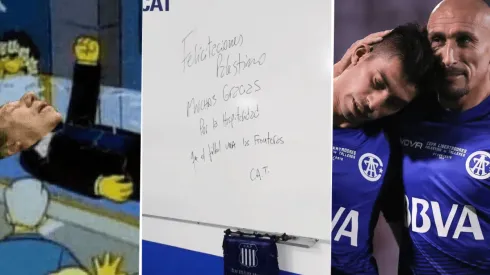 CAT
Felicitaciones
Palestino
Muchas Gracias
Por la Hospitalidad
Que el futbol una las Fronteras
C.A.T.
BBVA
BBVA